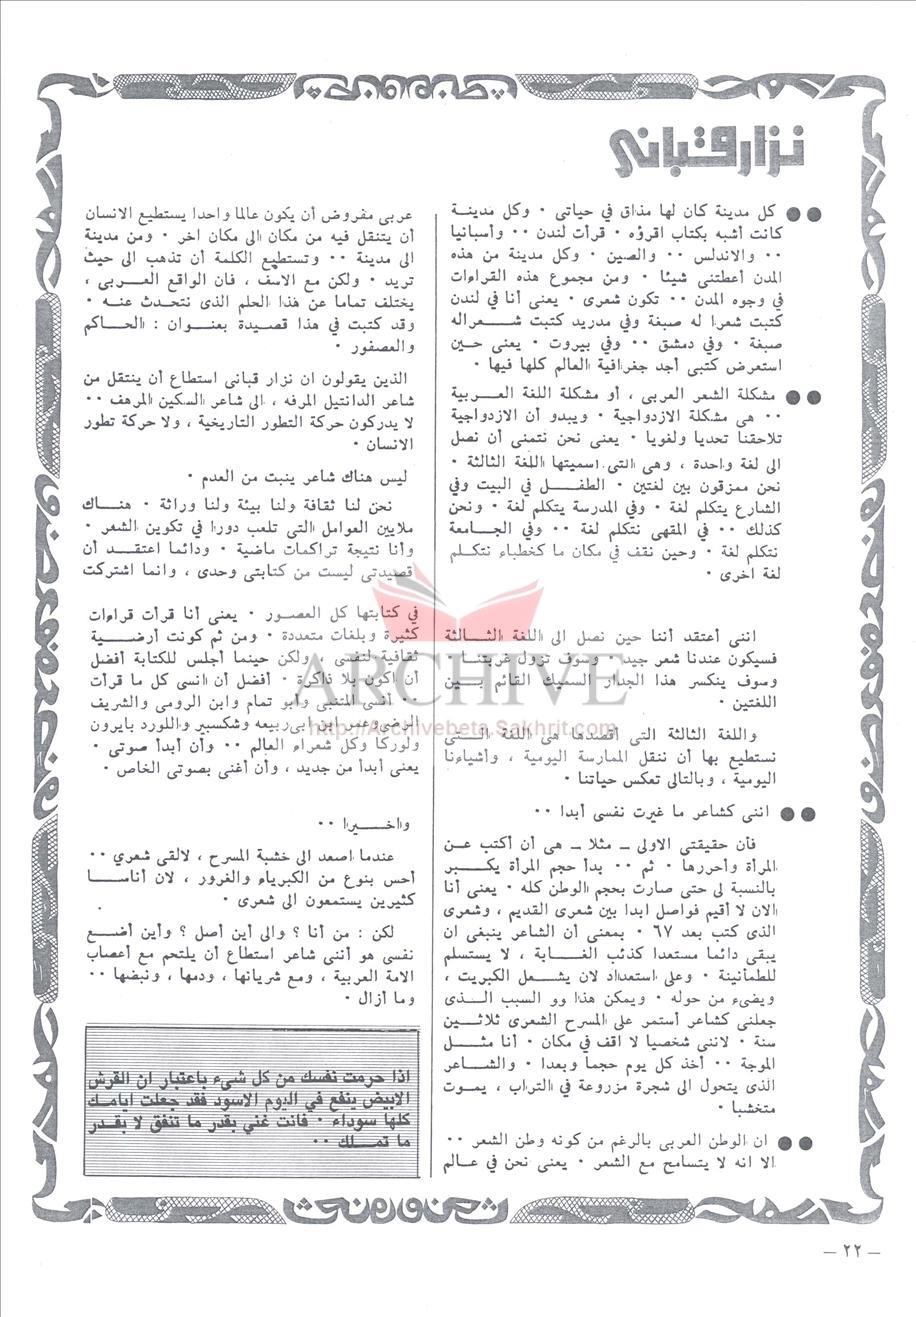 نزار قباني
●● كل مدينة كان لها مذاق في حياتى ٠ وكل مدينة
كانت أشبه بكتاب اقرؤه ٠ قرأت لندن ٠٠ وأسبانيا
٠٠ والاندلس ٠٠ والصين ٠ وكل مدينة من هذه
المدن أعطتنى شيئا ٠ ومن مجموع هذه القراءات
في وجوه المدن ٠٠ تكون شعرى ٠ يعنى أنا في لندن
كتبت شعرا له صبغة وفي مدريد كتبت شعرا له
صبغة ٠ وفي دمشق ٠٠ وفي بيروت ٠ يعنى حين
استعرض كتبى أجد جغرافية العالم كلها فيها ٠
●● مشكلة الشعر العربى ، أو مشكلة اللغة العربية
٠٠ هى مشكلة الازدواجية ٠ ويبدو أن الازدواجية
تلاحقنا تحديا ولغويا ٠ يعنى نحن نتمنى أن نصل
الى لغة واحدة ، وهى التى اسميتها اللغة الثالثة ٠
نحن ممزقون بين لغتين ٠ الطفل في البيت وفي
الشارع يتكلم لغة ٠ وفي المدرسة يتكلم لغة ٠ ونحن
كذلك ٠٠ في المقهى نتكلم لغة ٠٠ وفي الجامعة
نتكلم لغة ٠ وحين نقف في مكان ما كخطباء نتكلم
لغة اخرى ٠
اننى أعتقد أننا حين نصل الى اللغة الثالثة
فسيكون عندنا شعر جيد ٠ وسوف تزول غربتنا ٠
وسوف ينكسر هذا الجدار السميك القائم بين
اللغتين ٠
واللغة الثالثة التى أقصدها هى اللغة التى
نستطيع بها أن ننقل الممارسة اليومية ، وأشياءنا
اليومية ، وبالتالى تعكس حياتنا ٠
●● اننى كشاعر ما غيرت نفسى أبدا ٠٠
فان حقيقتى الاولى ـ مثلا ـ هى أن أكتب عن
المرأة وأحررها ٠ ثم ٠٠ بدأ حجم المرأة يكبر
بالنسبة لى حتى صارت بحجم الوطن كله ٠ يعنى أنا
الان لا أقيم فواصل ابدا بين شعرى القديم ، وشعرى
الذى كتب بعد ٦٧ ٠ بمعنى أن الشاعر ينبغى ان
يبقى دائما مستعدا كذئب الغابة ، لا يستسلم
للطمأنينة ٠ وعلى استعداد لان يشعل الكبريت ،
ويضىء من حوله ٠ ويمكن هذا وو السبب الذى
جعلنى كشاعر أستمر على المسرح الشعرى ثلاثين
سنة ٠ لاننى شخصيا لا اقف في مكان ٠ أنا مثل
الموجة ٠٠ أخذ كل يوم حجما وبعدا ٠ والشاعر
الذى يتحول الى شجرة مزروعة في التراب ، يموت
متخشبا ٠
●● ان الوطن العربى بالرغم من كونه وطن الشعر ٠٠
الا انه لا يتسامح مع الشعر ٠ يعنى نحن في عالم
عربى مفروض أن يكون عالما واحدا يستطيع الانسان
أن يتنقل فيه من مكان الى مكان اخر ٠ ومن مدينة
الى مدينة ٠٠ وتستطيع الكلمة أن تذهب الى حيث
تريد ٠ ولكن مع الاسف ، فان الواقع العربى ،
يختلف تماما عن هذا الحلم الذى نتحدث عنه ٠
وقد كتبت في هذا قصيدة بعنوان : الحاكم
والعصفور ٠
الذين يقولون ان نزار قبانى استطاع أن ينتقل من
شاعر الدانتيل المرفه ، الى شاعر السكين المرهف ٠٠
لا يدركون حركة التطور التاريخية ، ولا حركة تطور
الانسان ٠
ليس هناك شاعر ينبت من العدم ٠
نحن لنا ثقافة ولنا بيئة ولنا وراثة ٠ هناك
ملايين العوامل التى تلعب دورا في تكوين الشعر ٠
وأنا نتيجة تراكمات ماضية ٠ ودائما اعتقد أن
قصيدتى ليست من كتابتى وحدى ، وانما اشتركت
في كتابتها كل العصور ٠ يعنى أنا قرأت قراءات
كثيرة وبلغات متعددة ٠ ومن ثم كونت أرضية
ثقافية لنفسى ، ولكن حينما أجلس للكتابة أفضل
أن أكون بلا ذاكرة ٠ أفضل أن انسى كل ما قرأت
٠ أنسى المتنبى وأبو تمام وابن الرومى والشريف
الرضى وعمر بن ابى ربيعه وشكسبير واللورد بايرون
ولوركا وكل شعراء العالم ٠٠ وأن أبدأ صوتى ٠
يعنى أبدأ من جديد ، وأن أغنى بصوتى الخاص ٠
واخيرا ٠٠
عندما اصعد الى خشبة المسرح ، لالقى شعري ٠٠
أحس بنوع من الكبرياء والغرور ، لان أناسا
كثيرين يستمعون الى شعرى ٠
لكن : من أنا ؟ والى أين أصل ؟ وأين أضع
نفسى هو أننى شاعر استطاع أن يلتحم مع أعصاب
الامة العربية ، ومع شريانها ، ودمها ، ونبضها ٠٠
وما أزال ٠
اذا حرمت نفسك من كل شيء باعتبار ان القرش
الابيض ينفع في اليوم الاسود فقد جعلت ايامك
كلها سوداء ٠ فانت غني بقدر ما تنفق لا بقدر
ما تملك ٠٠
ARCHIVE
http://Archivebeta.Sakhrit.com
— ٢٢ —